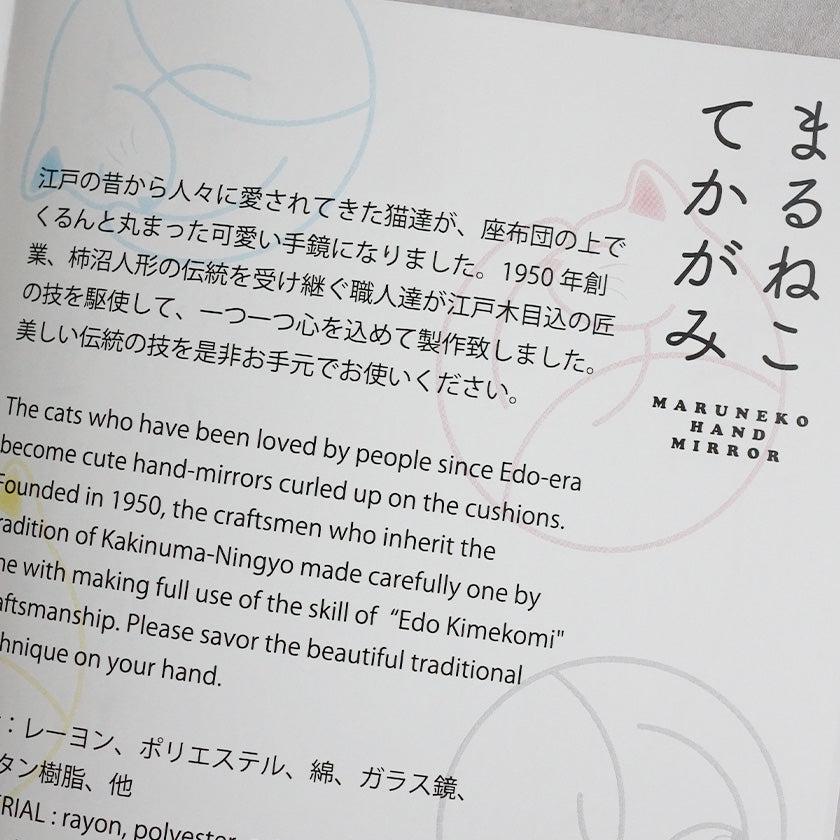 まるねこ
てかがみ
MARUNEKO
HAND
MIRROR
江戸の昔から人々に愛されてきた猫達が、座布団の上で
くるんと丸まった可愛い手鏡になりました。1950年創
業、柿沼人形の伝統を受け継ぐ職人達が江戸木目込の匠
の技を駆使して、一つ一つ心を込めて製作致しました。
美しい伝統の技を是非お手元でお使いください。
The cats who have been loved by people since Edo-era
become cute hand-mirrors curled up on the cushions.
Founded in 1950, the craftsmen who inherit the
radition of Kakinuma-Ningyo made carefully one by
ne with making full use of the skill of “Edo Kimekomi"
aftsmanship. Please savor the beautiful traditional
hnique on your hand.
：レーヨン、ポリエステル、綿、ガラス鏡、
タン樹脂、他
ERIAL : rayon, polyester